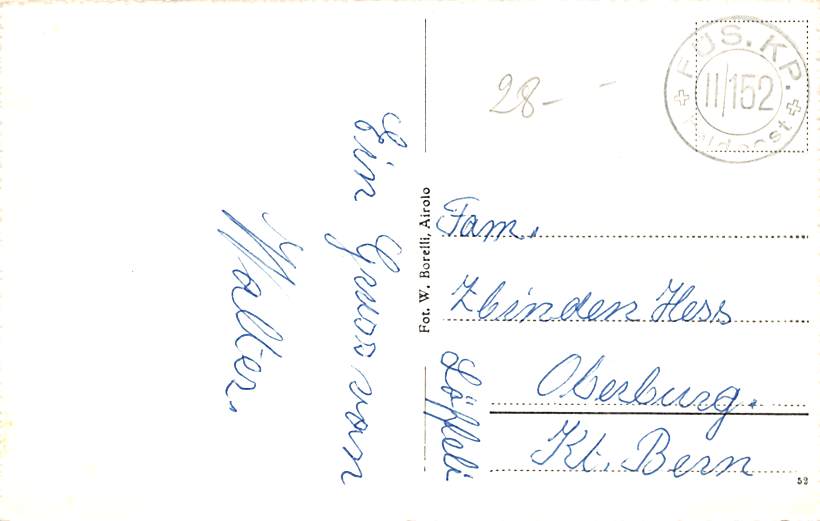 Ein Gruss von
Walter.
Fot. W. Borelli, Airolo
28-
FÜS. KP.
II/152
Feldpost
Fam.
Zbinden Hess
Löffeli
Oberburg.
Kt. Bern
52